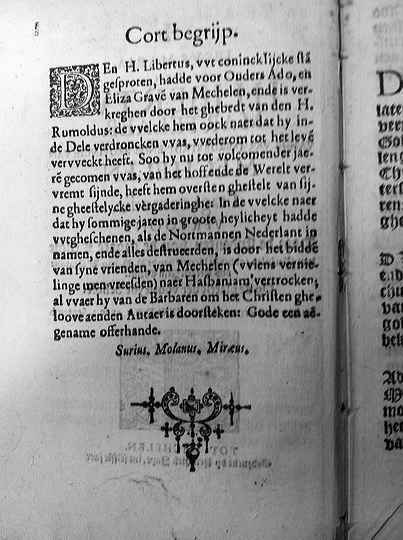 Cort begrijp.
DEn H. Libertus, vvt conincklijcke stā
gesproten, hadde voor Ouders Ado, en
Eliza Gravē van Mechelen, ende is ver-
kreghen door het ghebedt van den H.
Rumoldus: de vvelcke hem oock naer dat hy in-
de Dele verdroncken vvas, vvederom tot het levē
vervveckt heeft. Soo hy nu tot volcomender jae-
rē gecomen vvas, van het hoffende de Werelt ver-
vremt sijnde, heeft hem oversten ghestelt van sij-
ne gheestelycke vergaderinghe: In de vvelcke naer
dat hy sommige jaren in groote heylicheyt hadde
vvtgheschenen, als de Nortmannen Nederlant in
namen, ende alles destrueerden, is door het biddē
van syne vrienden, van Mechelen (vviens vernie-
linge men vreesden) naer Hasbaniam vertrocken;
al vvaer hy van de Barbaren om het Christen ghe-
loove aenden Autaer is doorsteken: Gode een aē-
gename offerhande.
Surius. Molanus. Miræus.
D
late
veri
Go
len
Ch
ter
ren
ghe
D
end
chu
van
gol
bek
Ad
M
mo
het
va